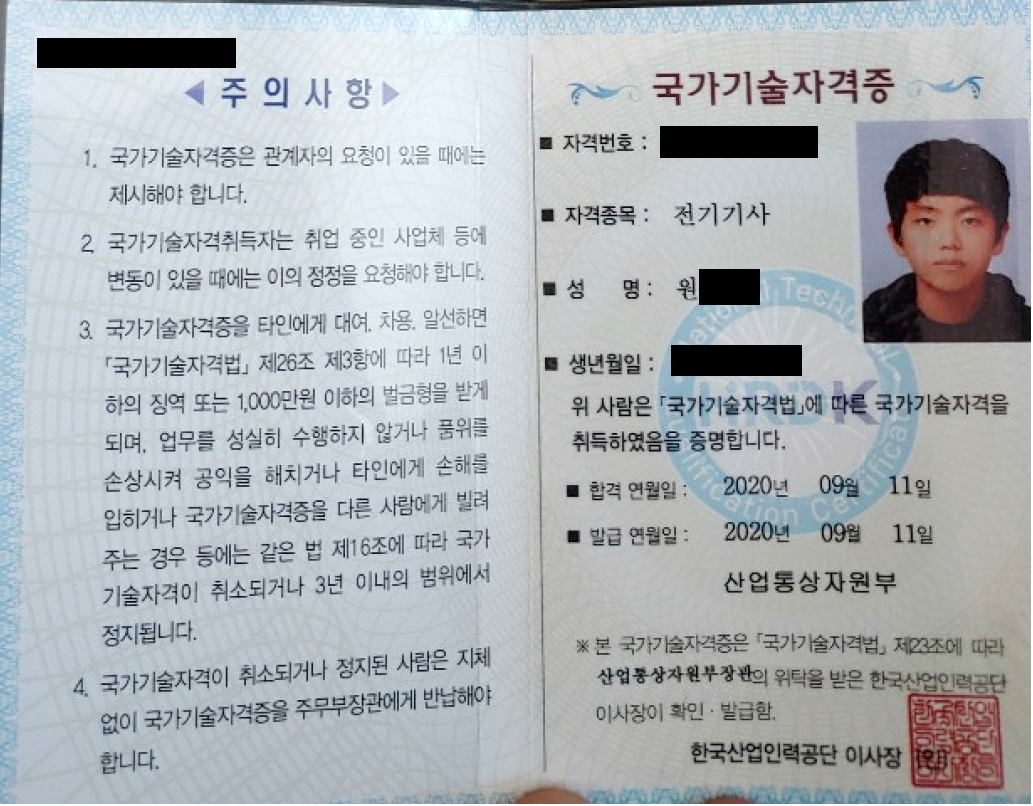 주 의 사 항
1. 국가기술자격증은 관계자의 요청이 있을 때에는
제시해야 합니다.
2. 국가기술자격취득자는 취업 중인 사업체 등에
변동이 있을 때에는 이의 정정을 요청해야 합니다.
3. 국가기술자격증을 타인에게 대여, 차용, 알선하면
「국가기술자격법」 제26조 제3항에 따라 1년 이
하의 징역 또는 1,000만원 이하의 벌금형을 받게
되며, 업무를 성실히 수행하지 않거나 품위를
손상시켜 공익을 해치거나 타인에게 손해를
입히거나 국가기술자격증을 다른 사람에게 빌려
주는 경우 등에는 같은 법 제16조에 따라 국가
기술자격이 취소되거나 3년 이내의 범위에서
정지됩니다.
4. 국가기술자격이 취소되거나 정지된 사람은 지체
없이 국가기술자격증을 주무부장관에게 반납해야
합니다.
국가기술자격증
■ 자격번호 :
■ 자격종목 : 전기기사
■ 성 명 : 원
■ 생년월일 :
위 사람은 「국가기술자격법」에 따른 국가기술자격을
취득하였음을 증명합니다.
■ 합격 연월일 : 2020년 09월 11일
■ 발급 연월일 : 2020년 09월 11일
산업통상자원부
※ 본 국가기술자격증은 「국가기술자격법」 제23조에 따라
산업통상자원부장관의 위탁을 받은 한국산업인력공단
이사장이 확인 · 발급함.
한국산업인력공단 이사장
HRDK